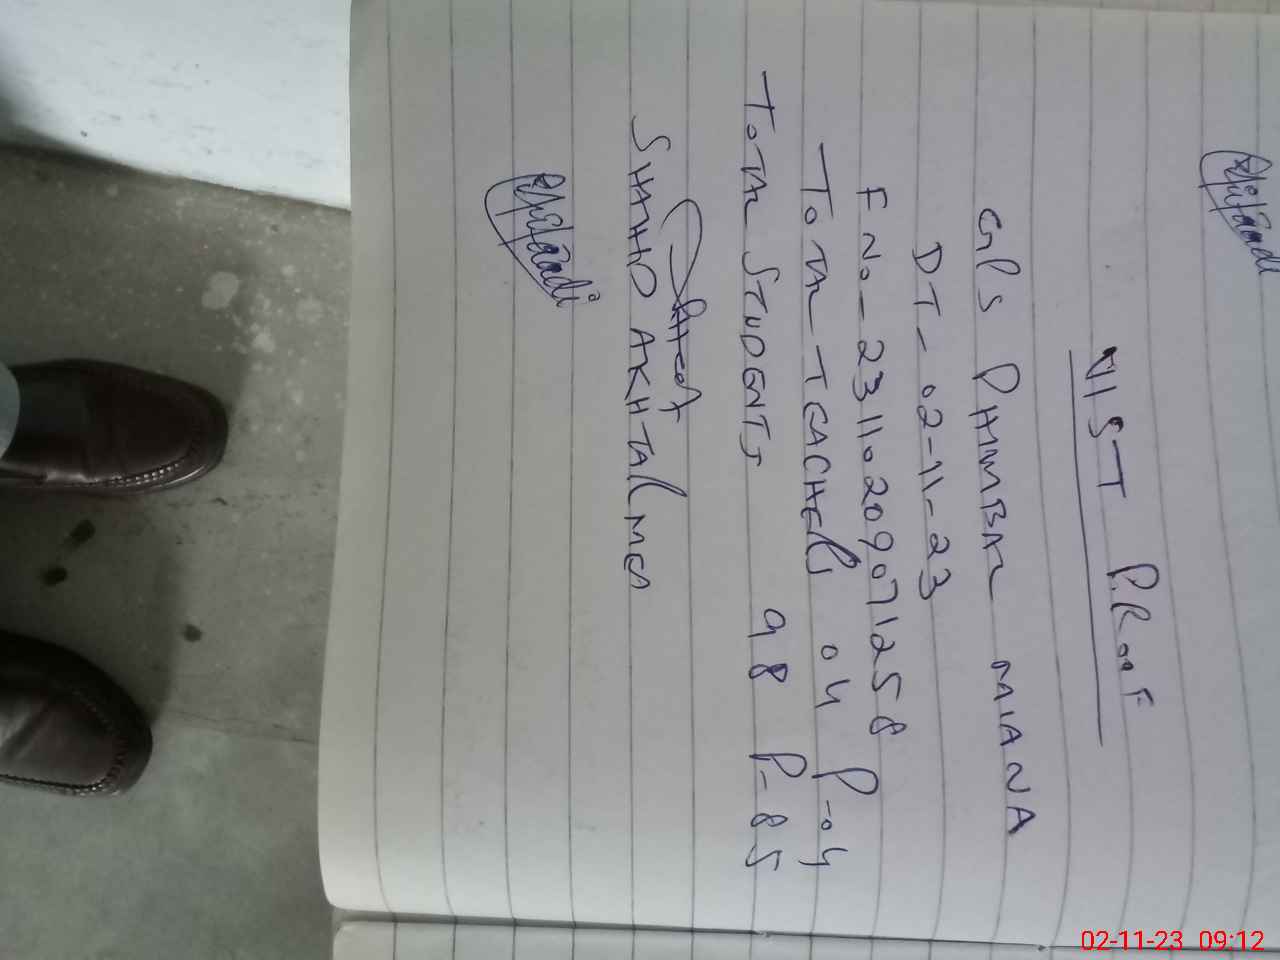 VIST PROOF
GPS PHIMBAR MIANA
DT- 02-11-23
F No- 23110209071258
TOTAL TEACHERS 04 P-04
TOTAL STUDENTS 98 P-85
SHAHID AKHTAR MEA
02-11-23 09:12